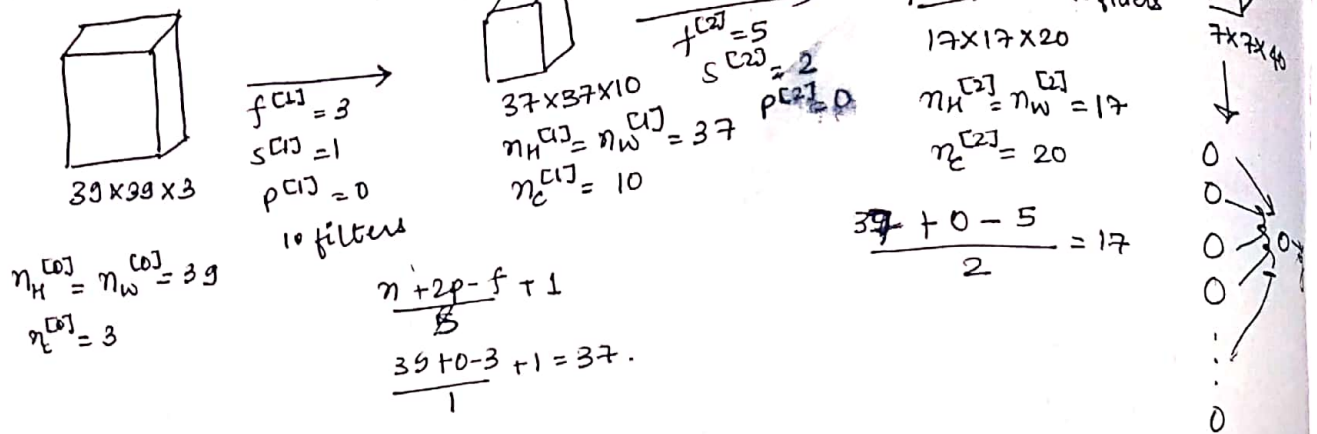 39×39×3
n_H^[0] = n_W^[0] = 39
n_c^[0] = 3
f^[1] = 3
s^[1] = 1
p^[1] = 0
10 filters
37×37×10
n_H^[1] = n_W^[1] = 37
n_c^[1] = 10
n+2p-f / s + 1
39+0-3 / 1 + 1 = 37.
f^[2] = 5
s^[2] = 2
p^[2] = 0
17×17×20
n_H^[2] = n_W^[2] = 17
n_c^[2] = 20
37 + 0 - 5 / 2 = 17
7×7×40